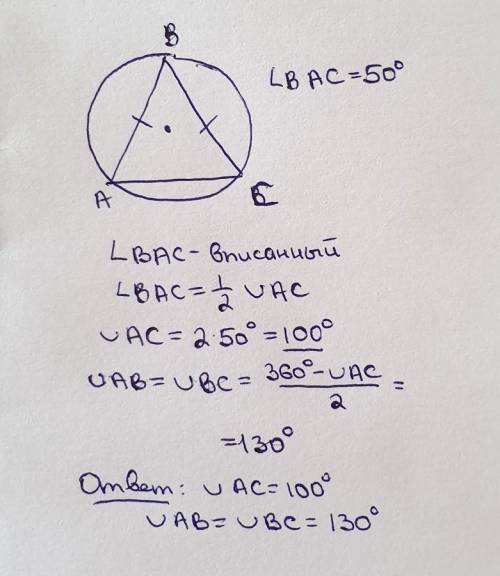 B
∠BAC=50°
A
C
∠BAC - вписанный
∠BAC = 1/2 ∪AC
∪AC = 2·50° = 100°
∪AB = ∪BC = (360° - ∪AC)/2 =
=130°
Ответ: ∪AC = 100°
∪AB = ∪BC = 130°